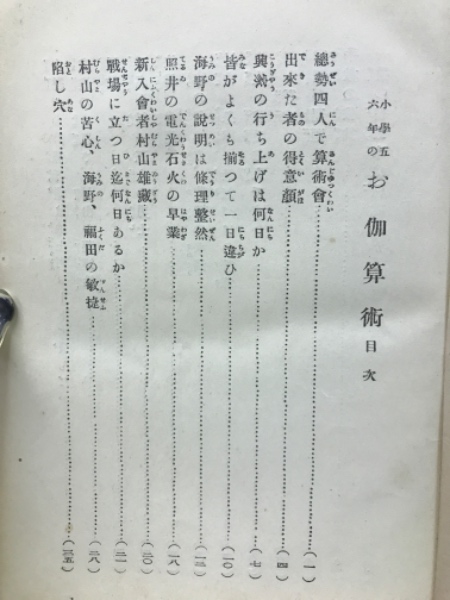 小學五六年の お伽算術 目次
總勢四人で算術會……(一)
出來た者の得意顏……(四)
興業の行ち上げは何日か……(七)
皆がよくも揃つて一日違ひ……(一〇)
海野の説明は條理整然……(一三)
照井の電光石火の早業……(一八)
新入會者村山雄藏……(二〇)
戰場に立つ日迄何日あるか……(二一)
村山の苦心、海野、福田の敏捷……(二八)
陷し穴……(三五)